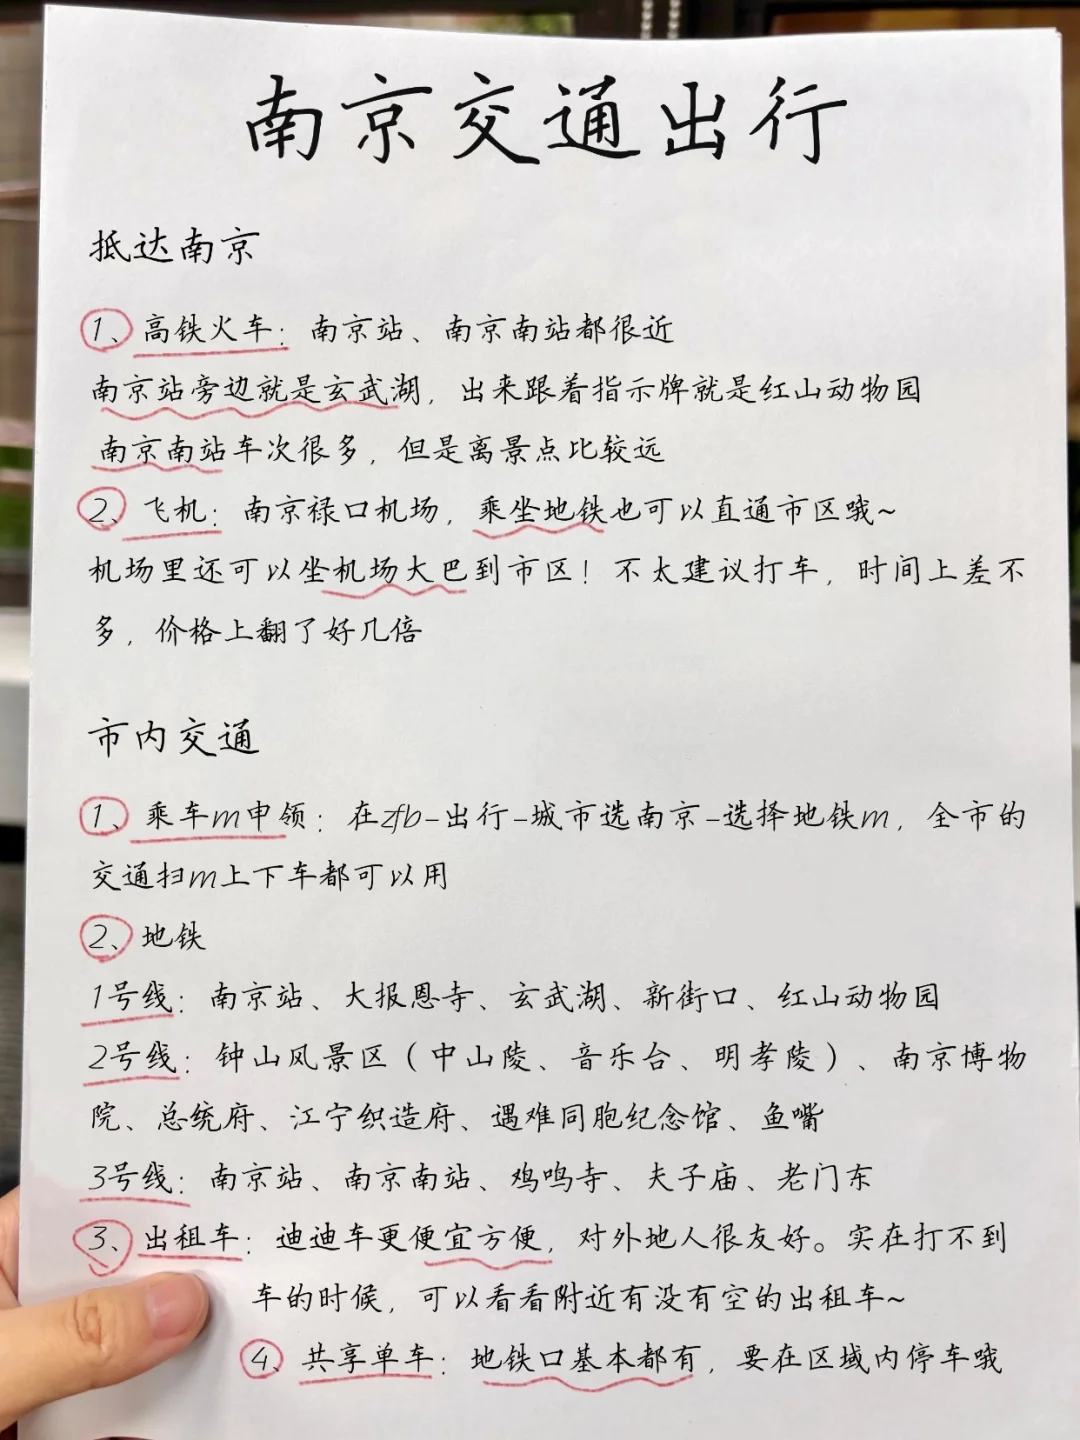 南京交通出行
抵达南京
1、高铁火车：南京站、南京南站都很近
南京站旁边就是玄武湖，出来跟着指示牌就是红山动物园
南京南站车次很多，但是离景点比较远
2、飞机：南京禄口机场，乘坐地铁也可以直通市区哦~
机场里还可以坐机场大巴到市区！不太建议打车，时间上差不
多，价格上翻了好几倍
市内交通
1、乘车m申领：在zfb-出行-城市选南京-选择地铁m，全市的
交通扫m上下车都可以用
2、地铁
1号线：南京站、大报恩寺、玄武湖、新街口、红山动物园
2号线：钟山风景区（中山陵、音乐台、明孝陵）、南京博物
院、总统府、江宁织造府、遇难同胞纪念馆、鱼嘴
3号线：南京站、南京南站、鸡鸣寺、夫子庙、老门东
3、出租车：迪迪车更便宜方便，对外地人很友好。实在打不到
车的时候，可以看看附近有没有空的出租车~
4、共享单车：地铁口基本都有，要在区域内停车哦